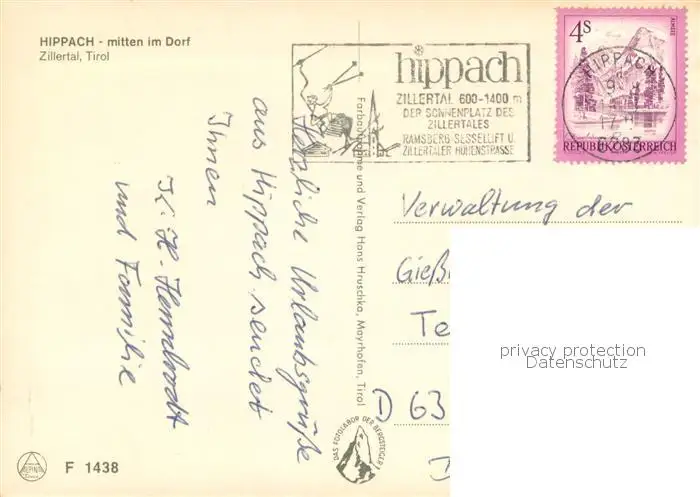 HIPPACH - mitten im Dorf
Zillertal, Tirol
hippach
ZILLERTAL 600-1400 m
DER SONNENPLATZ DES
ZILLERTALES
RAMSBERG-SESSELLIFT U.
ZILLERTALER HÖHENSTRASSE
4 S
ALMSEE
REPUBLIK ÖSTERREICH
HIPPACH
Herzliche Urlaubsgrüße
aus Hippach sendet
Ihnen
K. H.
und Familie
Farbaufnahme und Verlag Hans Hruschka, Mayrhofen, Tirol
Verwaltung der
Gieß
Te
D 63
privacy protection
Datenschutz
DAS FOTOLABOR DER BERGSTEIGER
F 1438